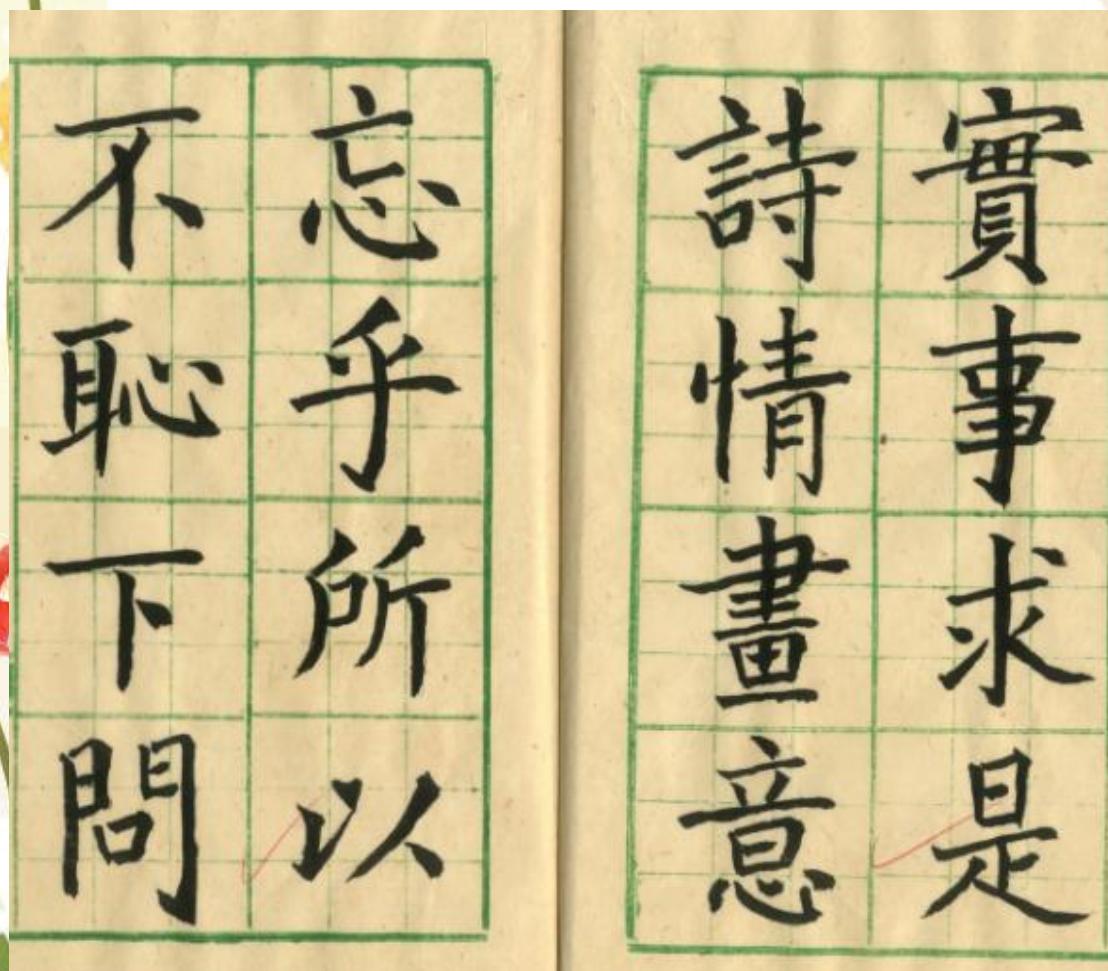 實事求是
詩情畫意
忘乎所以
不恥下問